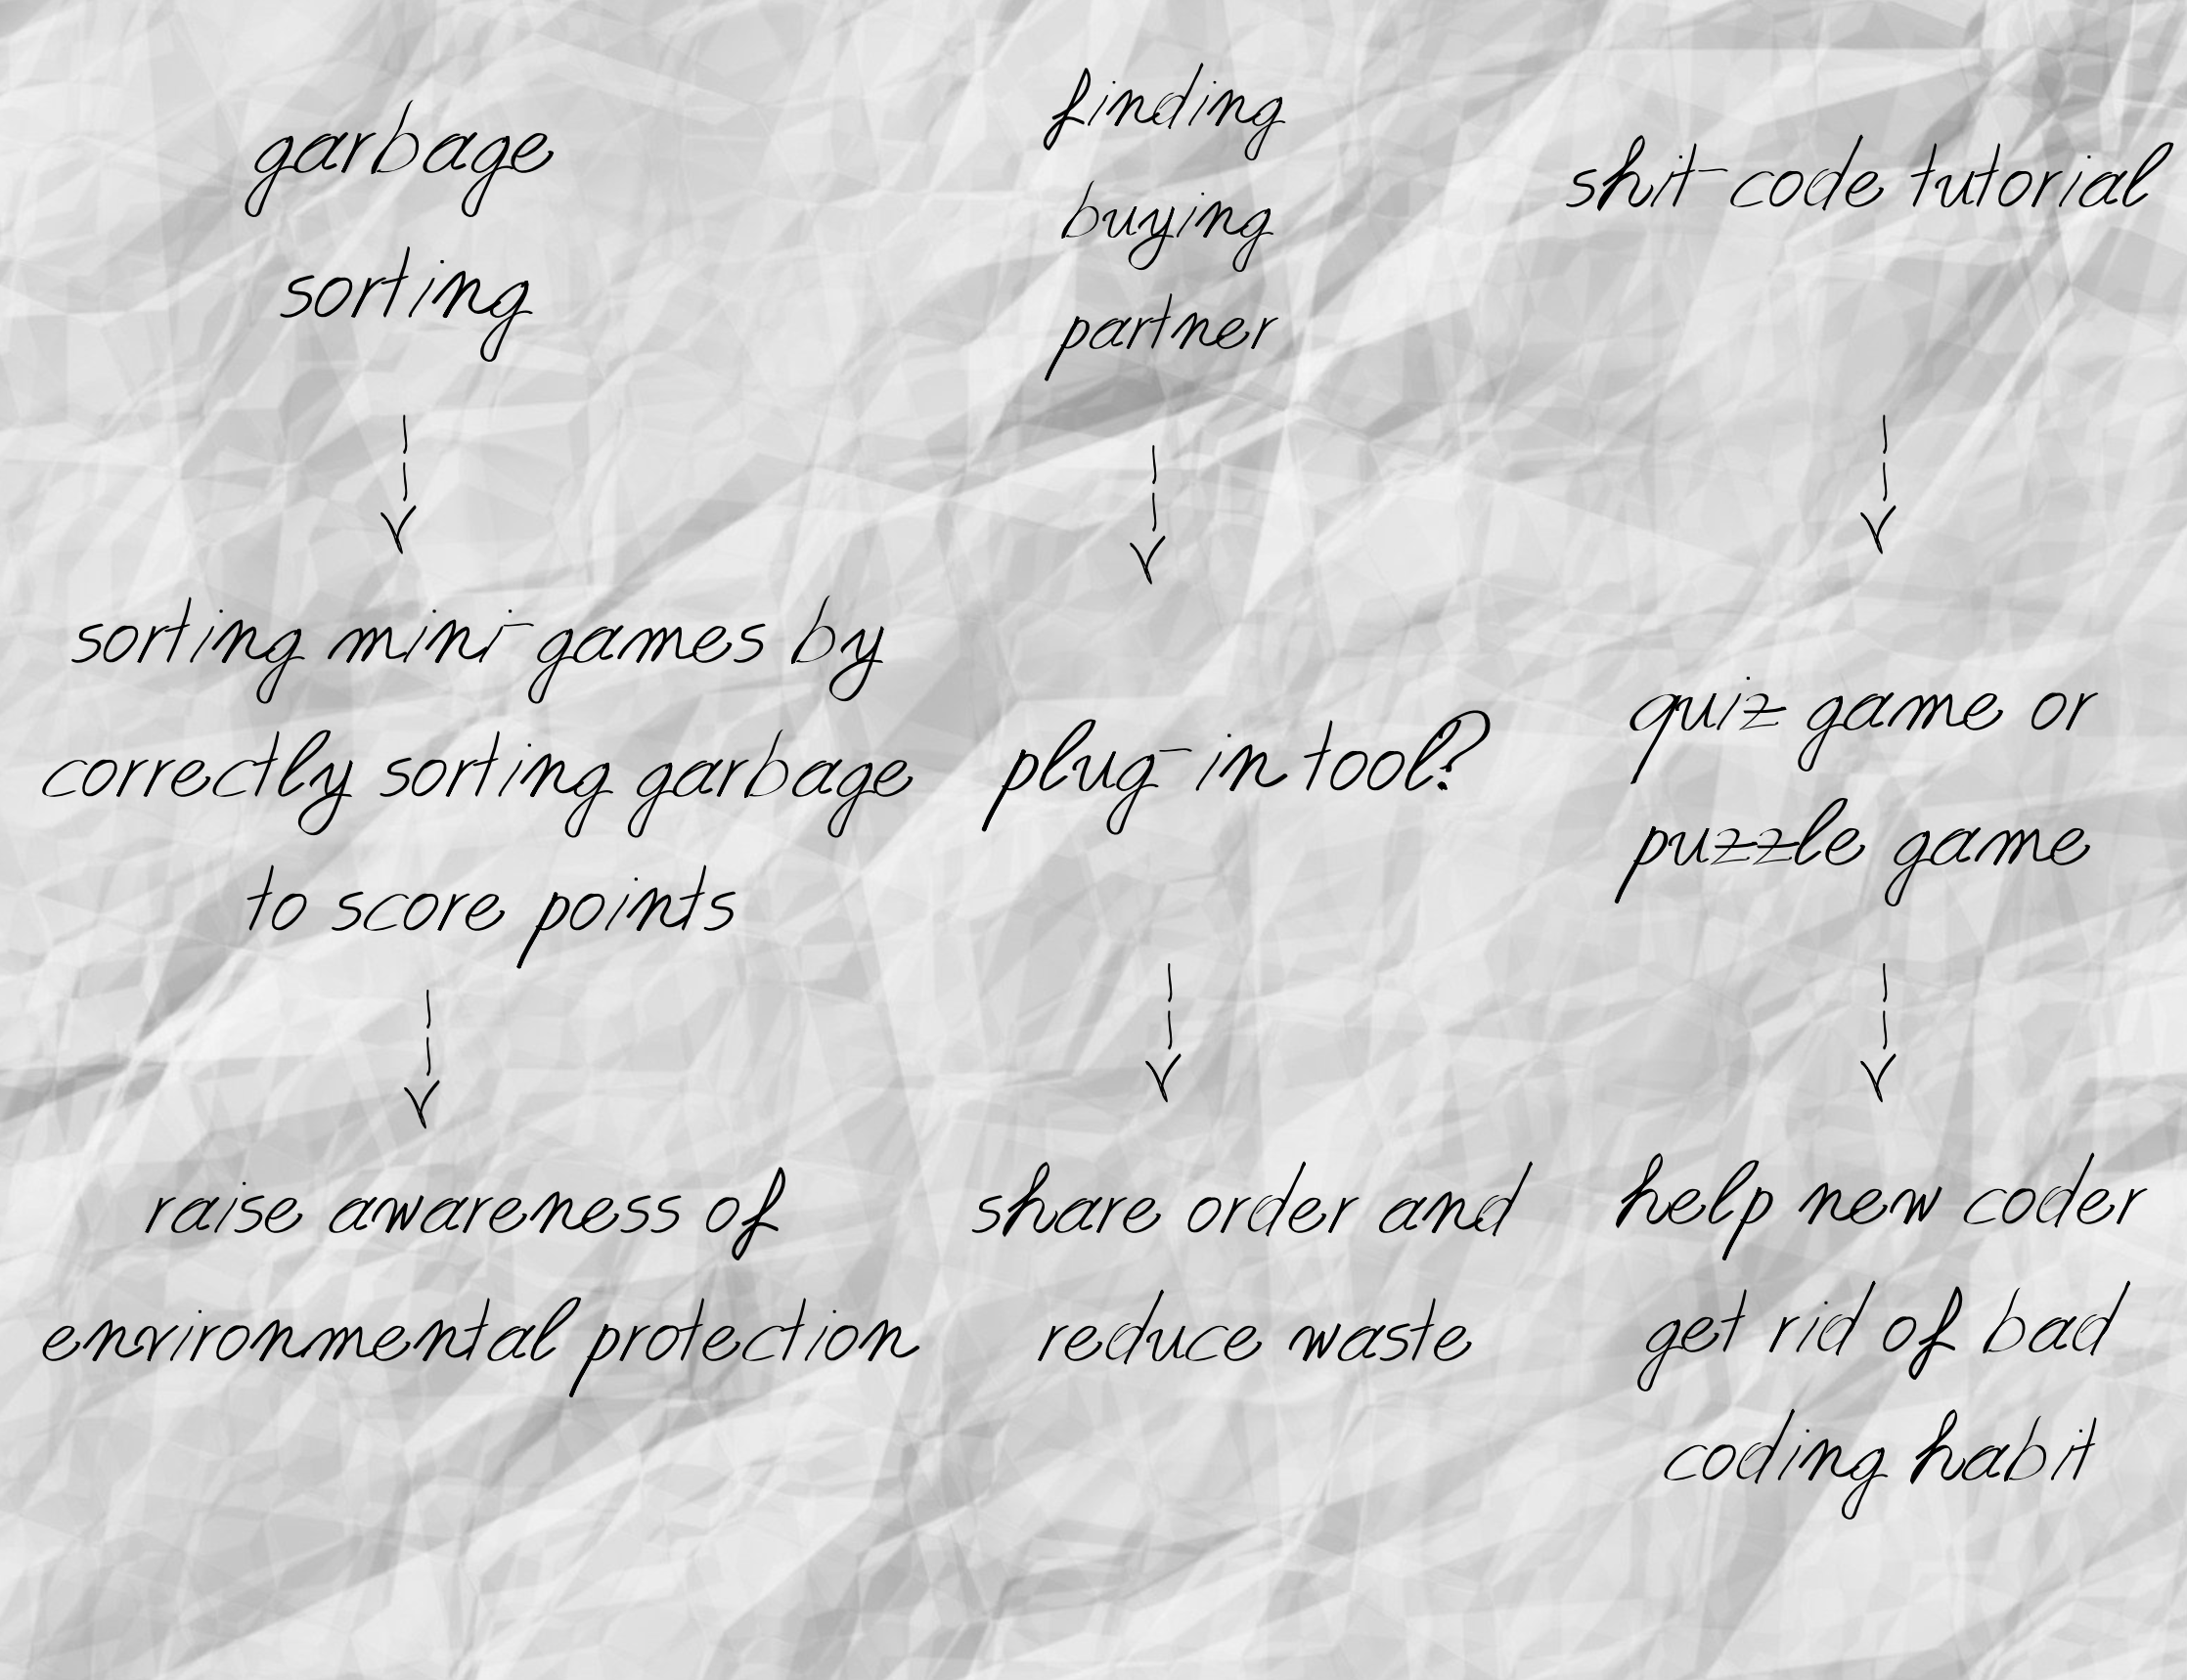 garbage
sorting
sorting mini-games by
correctly sorting garbage
to score points
raise awareness of
environmental protection
finding
buying
partner
plug-in tool?
share order and
reduce waste
shit-code tutorial
quiz game or
puzzle game
help new coder
get rid of bad
coding habit